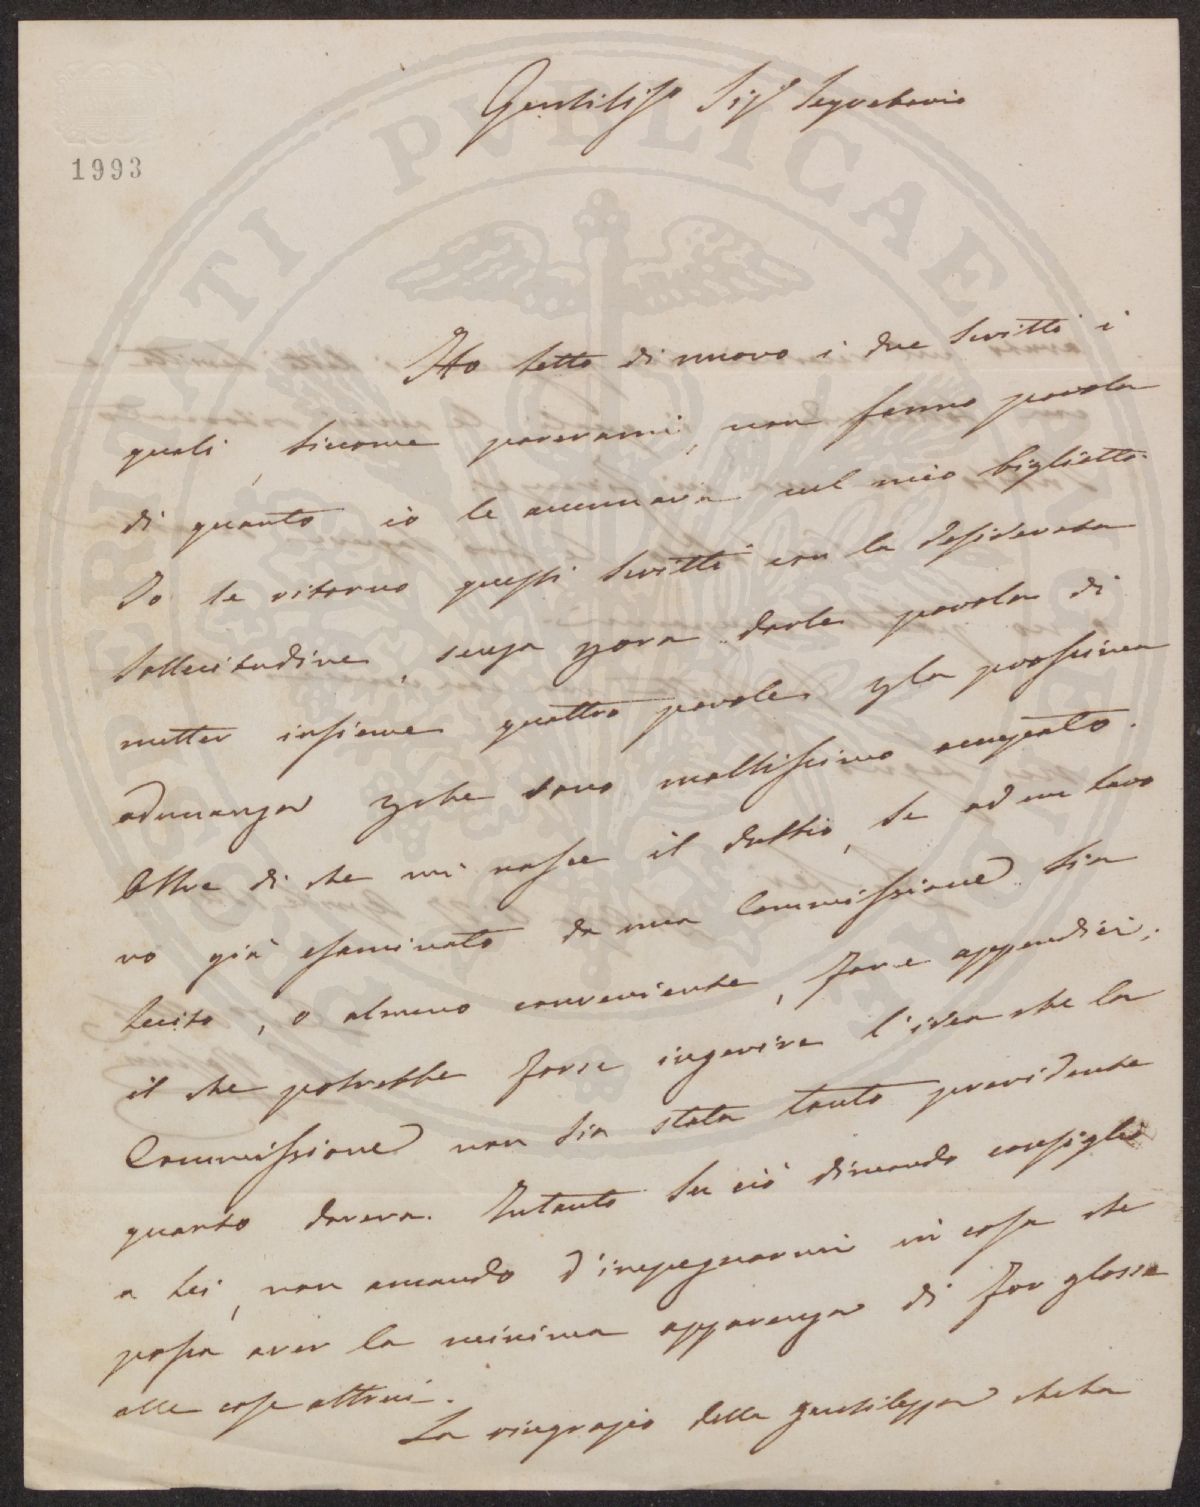 Gentiliss.o Sig.r Segretario
1993
Ho letto di nuovo i due scritti i
quali, siccome parevami, non fanno parola
di quanto io le accennava nel mio biglietto.
Io le ritorno questi scritti con la desiderata
sollecitudine, senza però darle parola di
metter insieme quattro parole p la prossima
adunanza pche sono moltissimo occupato.
Oltre di che mi nasce il dubbio, se ad un lavo
ro già esaminato da una Commissione sia
lecito, o almeno conveniente, fare appendici;
il che potrebbe forse ingerire l'idea che la
Commissione non sia stata tanto previdente
quanto doveva. Intanto su ciò dimando consiglio
a Lei, non amando d'impegnarmi in cosa che
possa aver la minima apparenza di far glosse
alle cose altrui.
La ringrazio della gentilezza che ha